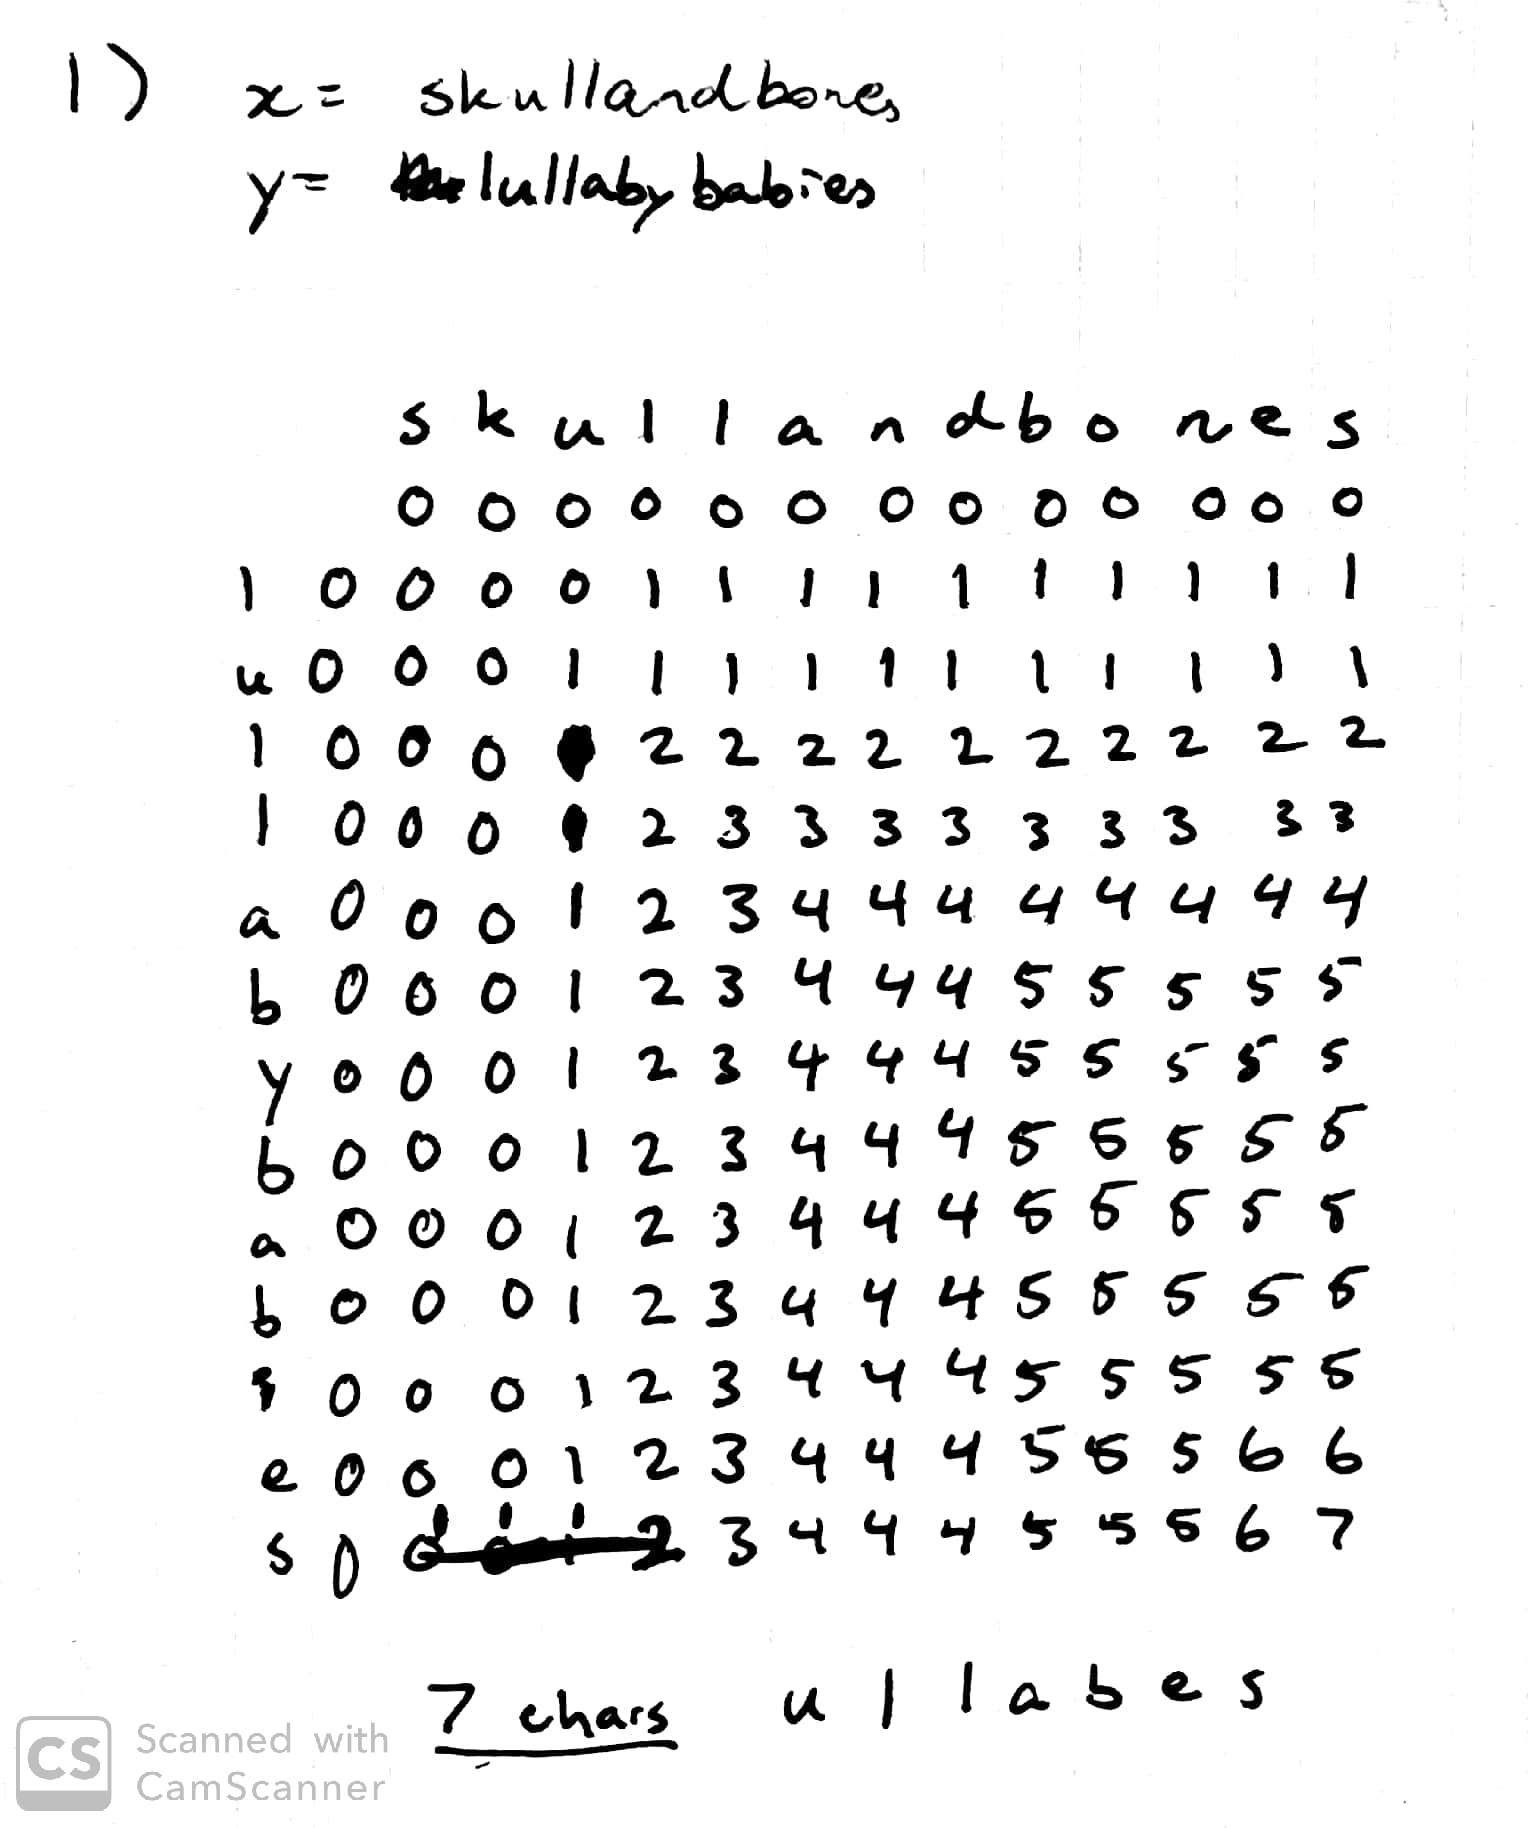 1) x= skullandbones
y= lullabybabies
s k u l l a n d b o n e s
0 0 0 0 0 0 0 0 0 0 0 0 0
l 0 0 0 0 1 1 1 1 1 1 1 1 1 1
u 0 0 0 1 1 1 1 1 1 1 1 1 1 1
l 0 0 0 2 2 2 2 2 2 2 2 2 2
l 0 0 0 2 3 3 3 3 3 3 3 3 3
a 0 0 0 1 2 3 4 4 4 4 4 4 4 4
b 0 0 0 1 2 3 4 4 4 5 5 5 5 5
y 0 0 0 1 2 3 4 4 4 5 5 5 5 5
b 0 0 0 1 2 3 4 4 4 5 5 5 5 5
a 0 0 0 1 2 3 4 4 4 5 5 5 5 5
b 0 0 0 1 2 3 4 4 4 5 5 5 5 5
i 0 0 0 1 2 3 4 4 4 5 5 5 5 5
e 0 0 0 1 2 3 4 4 4 5 5 5 6 6
s 0 1 1 1 2 3 4 4 4 5 5 5 6 7
7 chars u l l a b e s
CS Scanned with
CamScanner